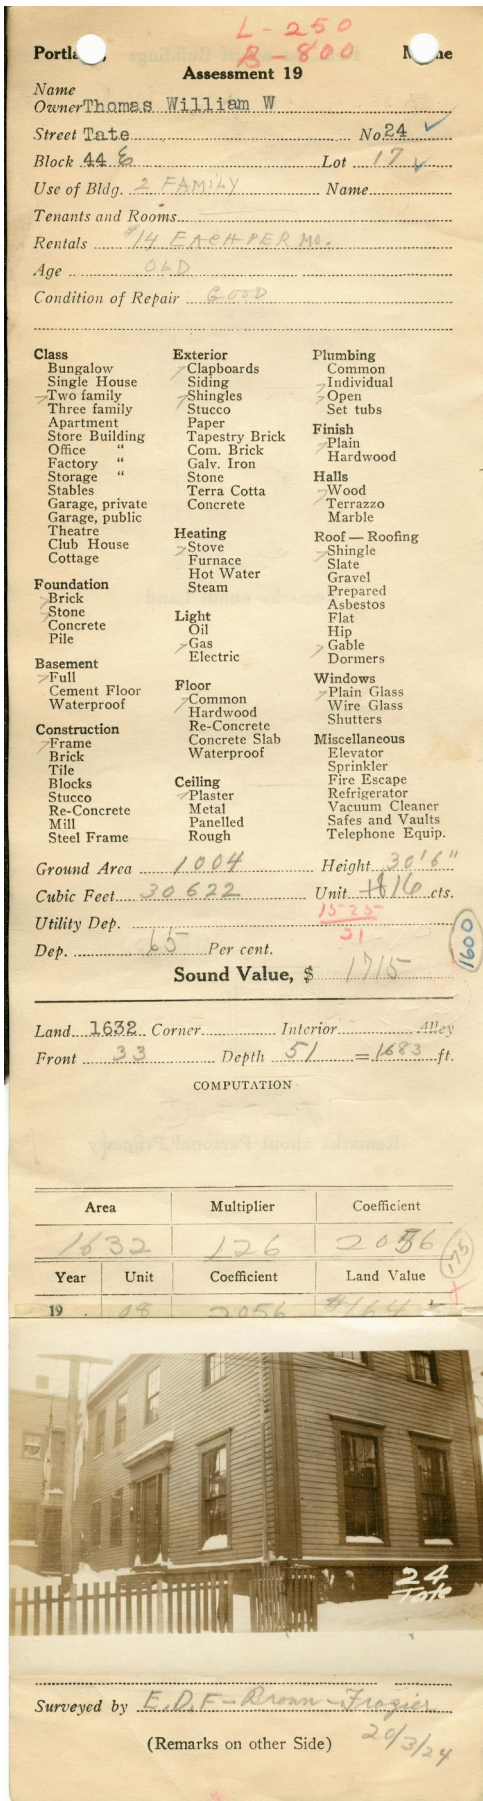 L-250
Portland, B-800 Maine
Assessment 19
Name
Owner Thomas William W
Street Tate No. 24
Block 44 E Lot 17
Use of Bldg. 2 FAMILY Name
Tenants and Rooms
Rentals $14 EACH PER MO.
Age OLD
Condition of Repair GOOD
Class
Bungalow
Single House
Two family
Three family
Apartment
Store Building
Office "
Factory "
Storage "
Stables
Garage, private
Garage, public
Theatre
Club House
Cottage
Foundation
Brick
Stone
Concrete
Pile
Basement
Full
Cement Floor
Waterproof
Construction
Frame
Brick
Tile
Blocks
Stucco
Re-Concrete
Mill
Steel Frame
Exterior
Clapboards
Siding
Shingles
Stucco
Paper
Tapestry Brick
Com. Brick
Galv. Iron
Stone
Terra Cotta
Concrete
Heating
Stove
Furnace
Hot Water
Steam
Light
Oil
Gas
Electric
Floor
Common
Hardwood
Re-Concrete
Concrete Slab
Waterproof
Ceiling
Plaster
Metal
Panelled
Rough
Plumbing
Common
Individual
Open
Set tubs
Finish
Plain
Hardwood
Halls
Wood
Terrazzo
Marble
Roof — Roofing
Shingle
Slate
Gravel
Prepared
Asbestos
Flat
Hip
Gable
Dormers
Windows
Plain Glass
Wire Glass
Shutters
Miscellaneous
Elevator
Sprinkler
Fire Escape
Refrigerator
Vacuum Cleaner
Safes and Vaults
Telephone Equip.
Ground Area 1004 Height 30'6"
Cubic Feet 30622 Unit 16 cts.
Utility Dep. 1525
51
Dep. 65 Per cent. 1600
Sound Value, $ 1715
Land 1632 Corner Interior Alley
Front 33 Depth 51 = 1683 ft.
COMPUTATION
Area Multiplier Coefficient
1632 126 2056
175
Year Unit Coefficient Land Value
19 08 2056 $164
24
Tate
Surveyed by E.D.F - Brown - Frazier
(Remarks on other Side) 20/3/24